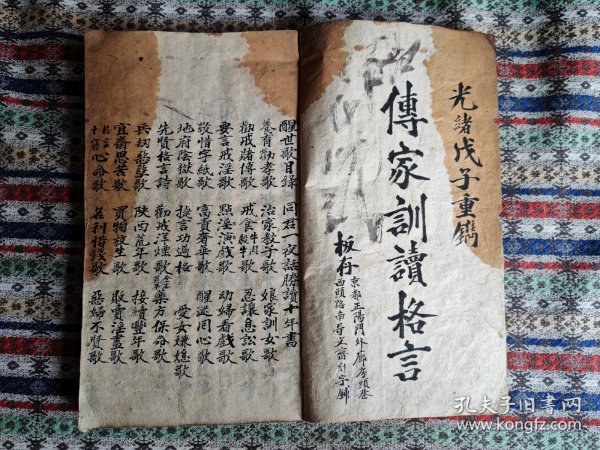 光緒戊子重鐫
傳家訓讀格言
板存
京都正陽門外廊房頭巷
西頭路南
醒世歌目錄 同君一夜話勝讀十年書
養育勸孝歌 治家教子歌 娘家訓女歌
勸戒諸傳歌 戒食牛肉歌 忍讓息訟歌
要言戒淫歌 點淫演戲歌 幼婦看戲歌
敬惜字紙歌 富貴奢華歌 醒迷同心歌
地府陰獄歌 提言功過格 愛女嫌媳歌
先賢格言詩 勸戒洋煙歌 藥方保命歌
兵初惡孽歌 陝西荒年歌 接續豐年歌
宜齋思苦歌 買物放生歌 販賣淫畫歌
格言十寫心命歌 名利惜錢歌 惡婦不賢歌
孔夫子旧书网
www.kongfz.com